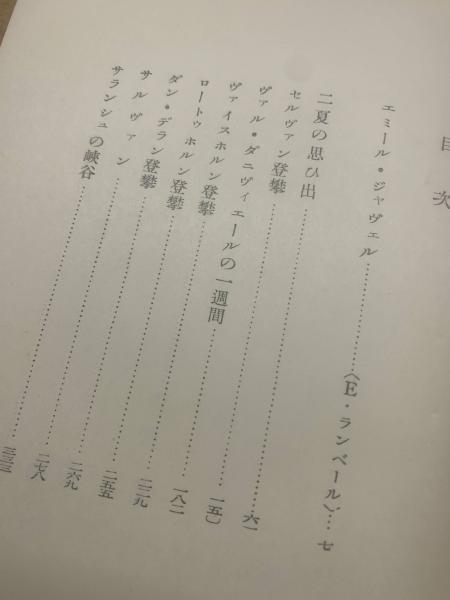 目次
エミール・ジャヴェル……〈E・ランベール〉…七
二夏の思ひ出……六一
セルヴァン登攀……一五〇
ヴァル・ダニヴィエールの一週間……一八二
ヴァイスホルン登攀……二二九
ロートゥホルン登攀……二五五
ダン・デラン登攀……二六九
サルヴァン……二七八
サランシュの峡谷……